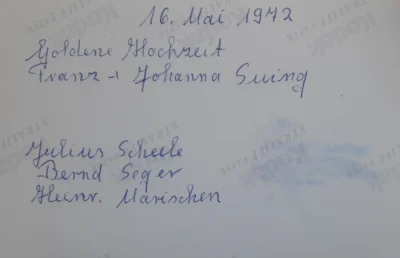 16. Mai 1972
Goldene Hochzeit
Franz + Johanna Suing
Julius Scheele
Bernd Seger
Heinr. Marischen